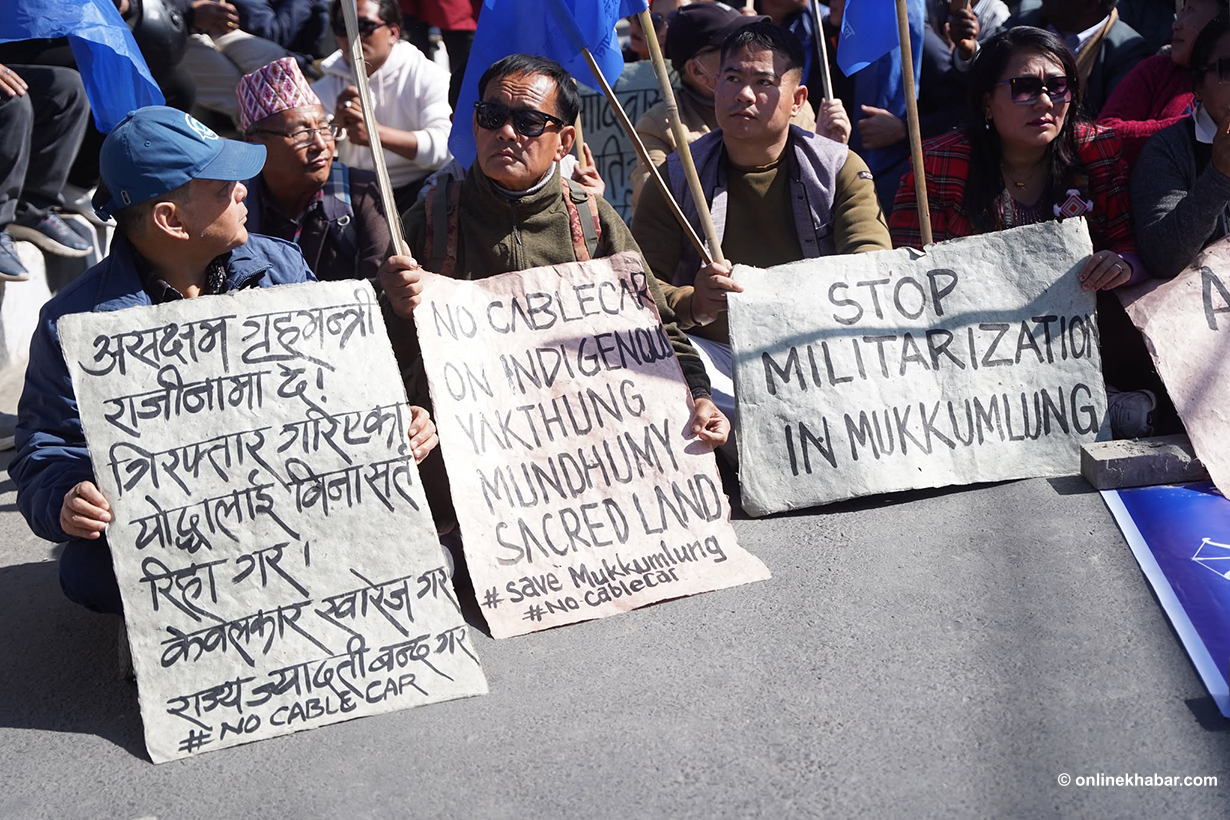 असक्षम गृहमन्त्री
राजीनामा दे!
गिरफ्तार गरिएका
योद्धालाई बिनासर्त
रिहा गर।
केवलकार खारेज गर
राज्य ज्यादती बन्द गर
# NO CABLE CAR
NO CABLECAR
ON INDIGENOUS
YAKTHUNG
MUNDHUMY
SACRED LAND
# Save Mukkumlung
# No CableCar
STOP
MILITARIZATION
IN MUKKUMLUNG
A
© onlinekhabar.com